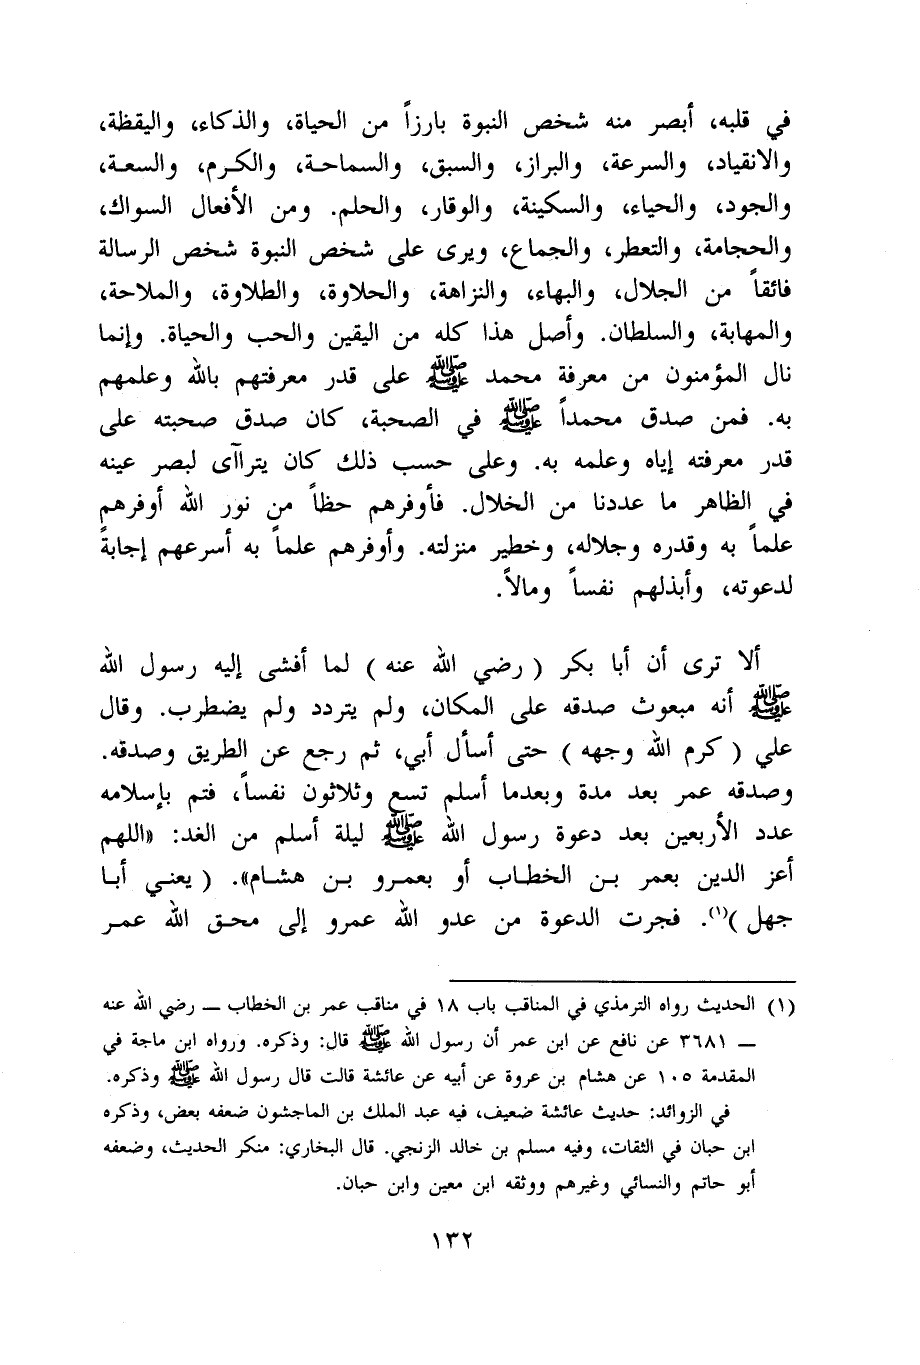 في قلبه، أبصر منه شخص النبوة بارزاً من الحياة، والذكاء، واليقظة،
والانقياد، والسرعة، والبراز، والسبق، والسماحة، والكرم، والسعة،
والجود، والحياء، والسكينة، والوقار، والحلم. ومن الأفعال السواك،
والحجامة، والتعطر، والجماع، ويرى على شخص النبوة شخص الرسالة
فائقاً من الجلال، والبهاء، والنزاهة، والحلاوة، والطلاوة، والملاحة،
والمهابة، والسلطان. وأصل هذا كله من اليقين والحب والحياة. وإنما
نال المؤمنون من معرفة محمد ﷺ على قدر معرفتهم بالله وعلمهم
به. فمن صدق محمداً ﷺ في الصحبة، كان صدق صحبته على
قدر معرفته إياه وعلمه به. وعلى حسب ذلك كان يتراآى لبصر عينه
في الظاهر ما عددنا من الخلال. فأوفرهم حظاً من نور الله أوفرهم
علماً به وقدره وجلاله، وخطير منزلته. وأوفرهم علماً به أسرعهم إجابةً
لدعوته، وأبذلهم نفساً ومالاً.
ألا ترى أن أبا بكر ( رضي الله عنه ) لما أفشى إليه رسول الله
ﷺ أنه مبعوث صدقه على المكان، ولم يتردد ولم يضطرب. وقال
علي ( كرم الله وجهه ) حتى أسأل أبي، ثم رجع عن الطريق وصدقه.
وصدقه عمر بعد مدة وبعدما أسلم تسع وثلاثون نفساً، فتم بإسلامه
عدد الأربعين بعد دعوة رسول الله ﷺ ليلة أسلم من الغد: «اللهم
أعز الدين بعمر بن الخطاب أو بعمرو بن هشام». ( يعني أبا
جهل )(١). فجرت الدعوة من عدو الله عمرو إلى محق الله عمر
(١) الحديث رواه الترمذي في المناقب باب ١٨ في مناقب عمر بن الخطاب ــ رضي الله عنه
ــ ٣٦٨١ عن نافع عن ابن عمر أن رسول الله ﷺ قال: وذكره. ورواه ابن ماجة في
المقدمة ١٠٥ عن هشام بن عروة عن أبيه عن عائشة قالت قال رسول الله ﷺ وذكره.
في الزوائد: حديث عائشة ضعيف، فيه عبد الملك بن الماجشون ضعفه بعض، وذكره
ابن حبان في الثقات، وفيه مسلم بن خالد الزنجي. قال البخاري: منكر الحديث، وضعفه
أبو حاتم والنسائي وغيرهم ووثقه ابن معين وابن حبان.
١٣٢